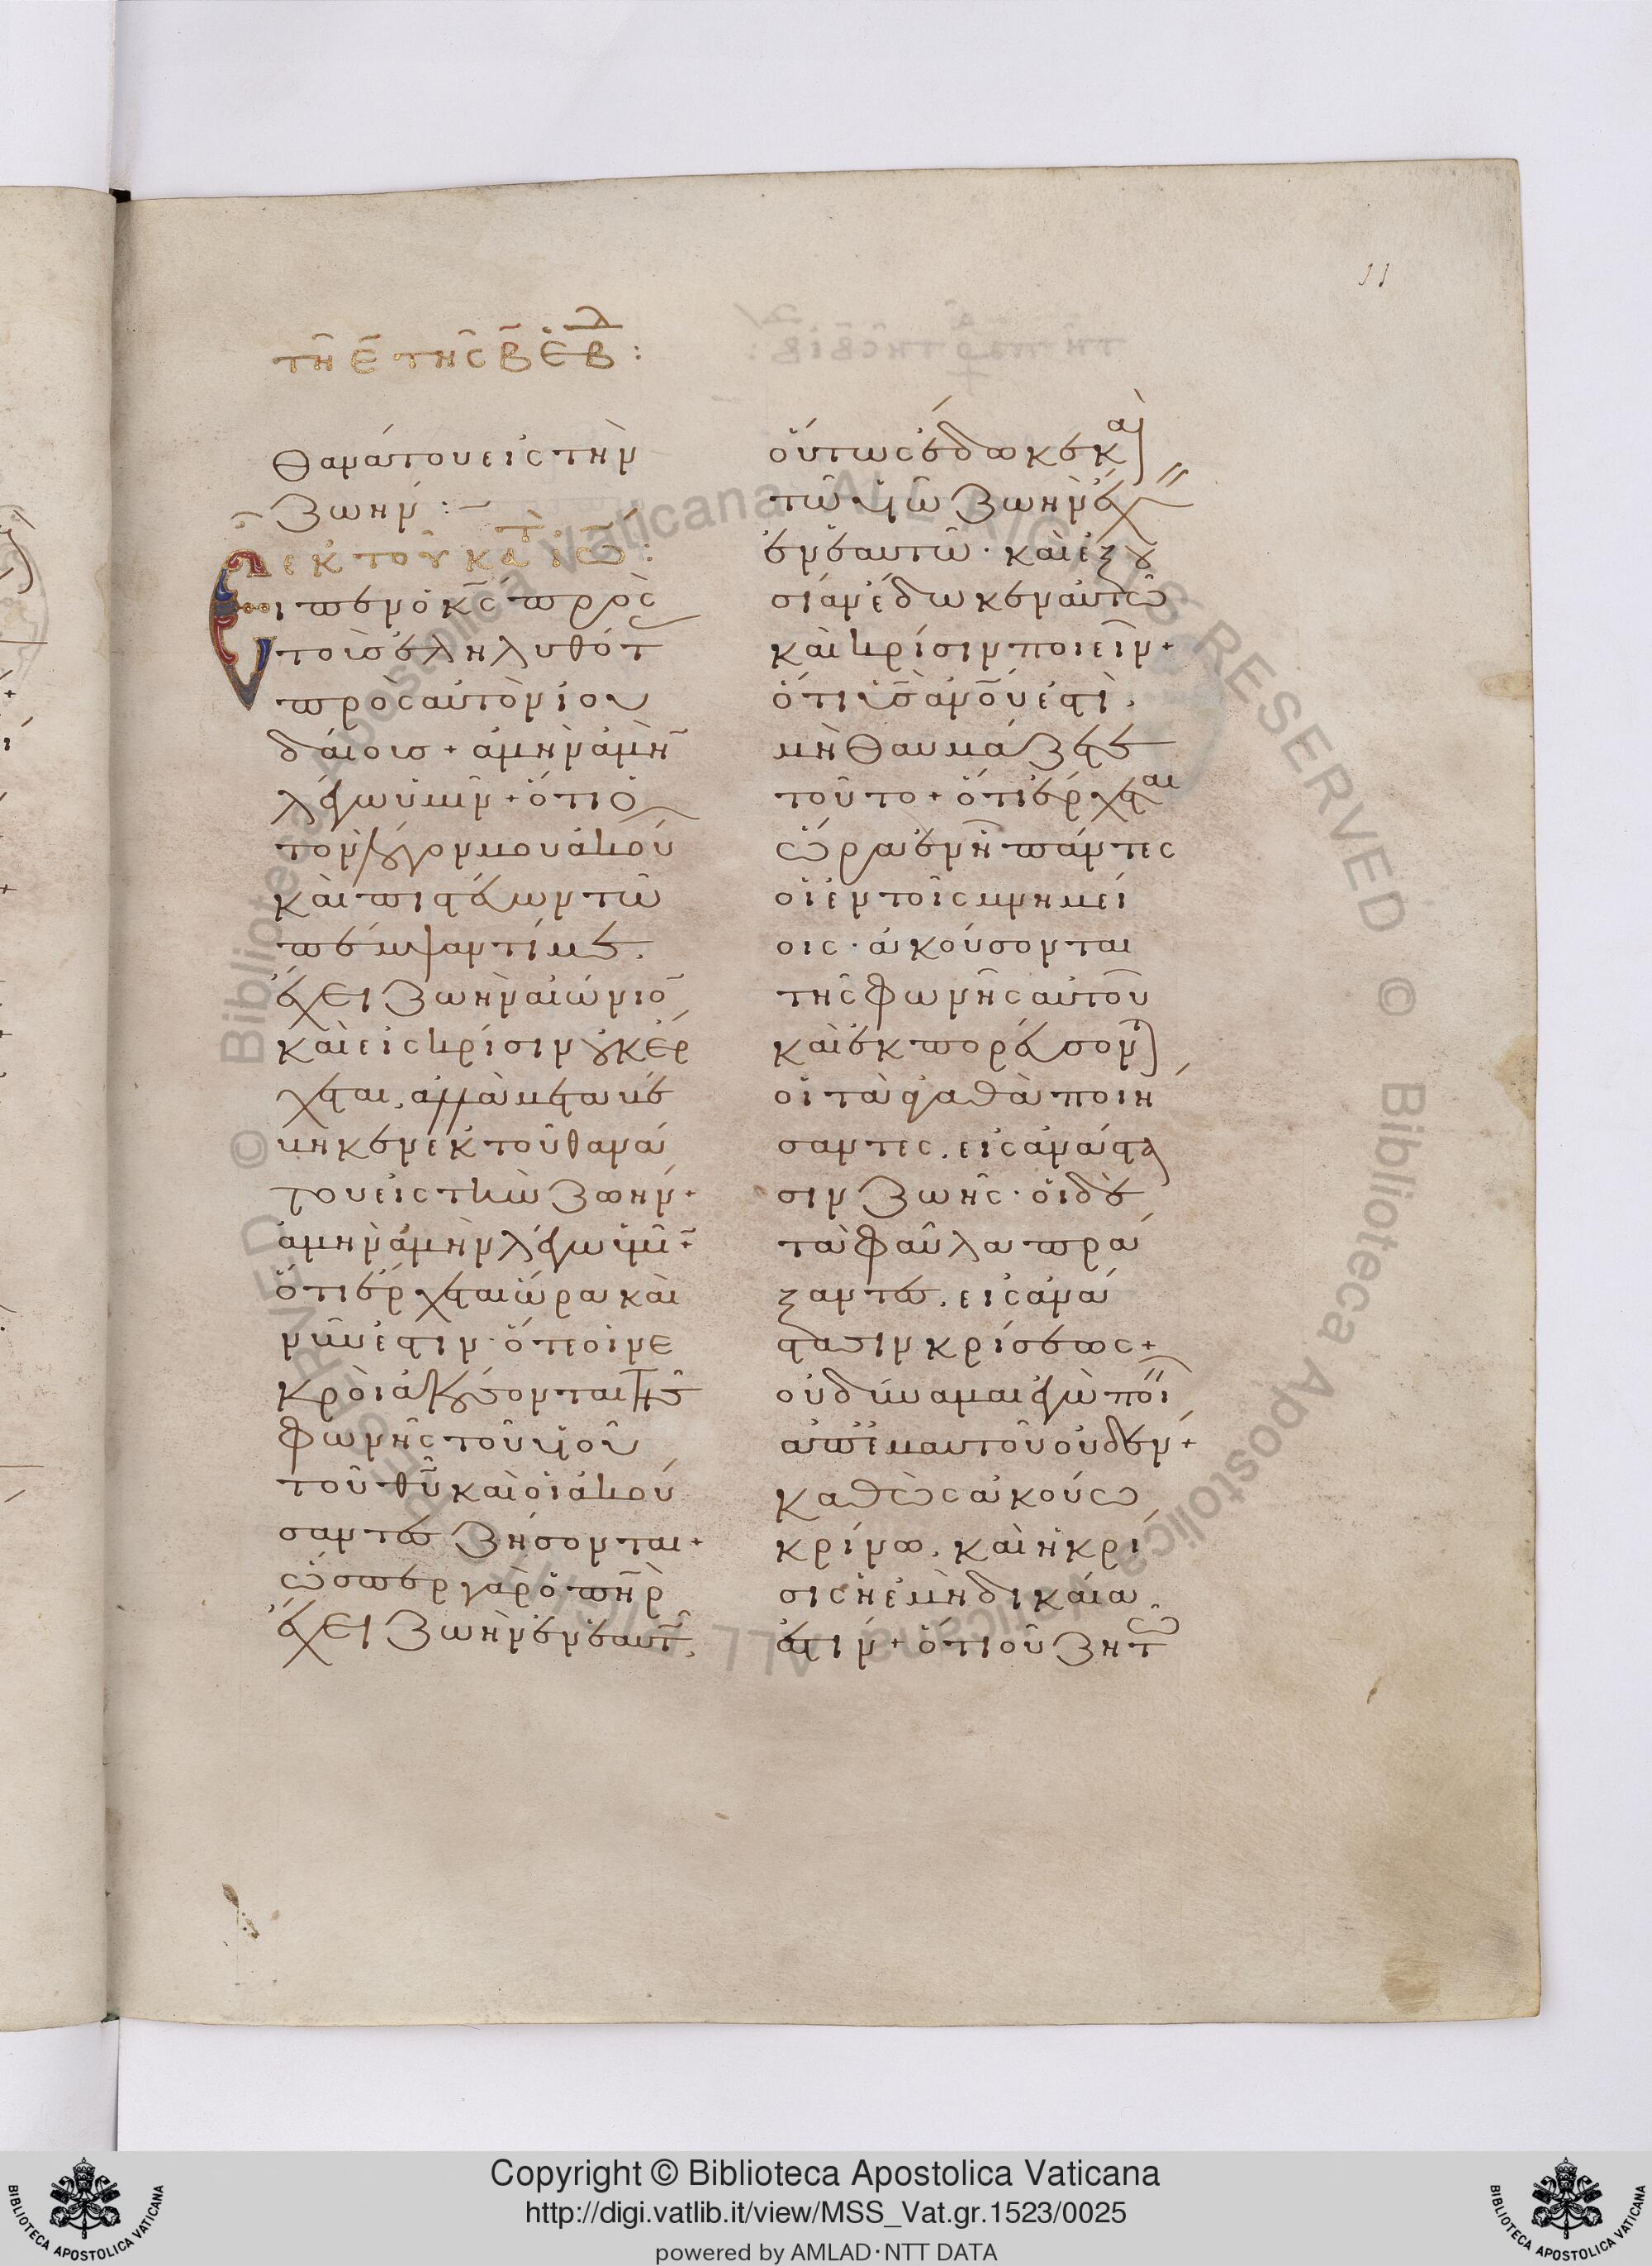 11
τῆ ε̄ τῆς β̄ ἑβ^δ :
θανάτου εἰς τὴν
ζωήν :–
ἐκ τοῦ κατ̀ ἰω̄ :
Εἶπεν ὁ κ̄ς πρὸς
τοὺς ἐληλυθότ̄
πρὸς αὐτὸν ἰου
δαίους + ἀμὴν ἀμὴ̄
λέγω ὑμῖν + ὅτι ὁ
τὸν λόγον μου ἀκού
και πιστεύων τῶ
πέμψαντί με,
ἔχει ζωὴν αἰώνιο̄
καὶ εἰς κρίσιν οὐκ έρ
χεται, ἀλλὰ μεταβέ
βηκεν ἐκ τοῦ θανά
του εἰς τὴν ζωήν +
ἀμὴν ἀμὴν λέγω ὑμῖ̄ +
ὅτι ἔρχεται ὥρα καὶ
νῦν ἐστιν · ὅτε οἱ νε
κροὶ ἀκούσονται τῆς
φωνῆς τοῦ υἱοῦ
τοῦ θ̄υ καὶ οἱ ἀκού
σαντες ζήσονται +
ὥσπερ γὰρ ὁ πη̄ρ
ἔχει ζωὴν ἐν ἑαυτ̄,
οὕτως ἔδωκε κ(αὶ)
τῶ υἱῶ ζωὴν ἔχ
ἐν ἑαυτῶ · καὶ ἐξου
σίαν ἔδωκεν αὐτῶ
καὶ κρίσιν ποιεῖν +
ὅτι ῡς ἀν̄ου ἐστὶ,
μὴ θαυμάζετε
τοῦτο + ὅτι ἔρχεται
ὥρα ἐν ἧ πάντες
οἱ ἐν τοῖς μνημεί
οις · ἀκούσονται
τῆς φωνῆς αὐτοῦ
καὶ ἐκπορεύσον(ται)
οἱ τὰ ἀγαθὰ ποιή
σαντες, εἰς ἀνάστα
σιν ζωῆς · οἱ δὲ
τὰ φαῦλα πρά
ξαντες, εἰς ἀνά
στασιν κρίσεως +
οὐ δύναμαι ἐγὼ ποι
ἀπ' ἐμαυτοῦ οὐδέν +
καθὼς ἀκούω
κρίνω, καὶ ἡ κρί
σις ἡ ἐμὴ δικαία
ἐστίν + ὅτι οὐ ζητῶ
© Biblioteca Apostolica Vaticana ALL RIGHTS RESERVED © Biblioteca Apostolica Vaticana ALL RIGHTS RESERVED
Copyright © Biblioteca Apostolica Vaticana
http://digi.vatlib.it/view/MSS_Vat.gr.1523/0025
powered by AMLAD·NTT DATA
BIBLIOTECA APOSTOLICA VATICANA
BIBLIOTECA APOSTOLICA VATICANA